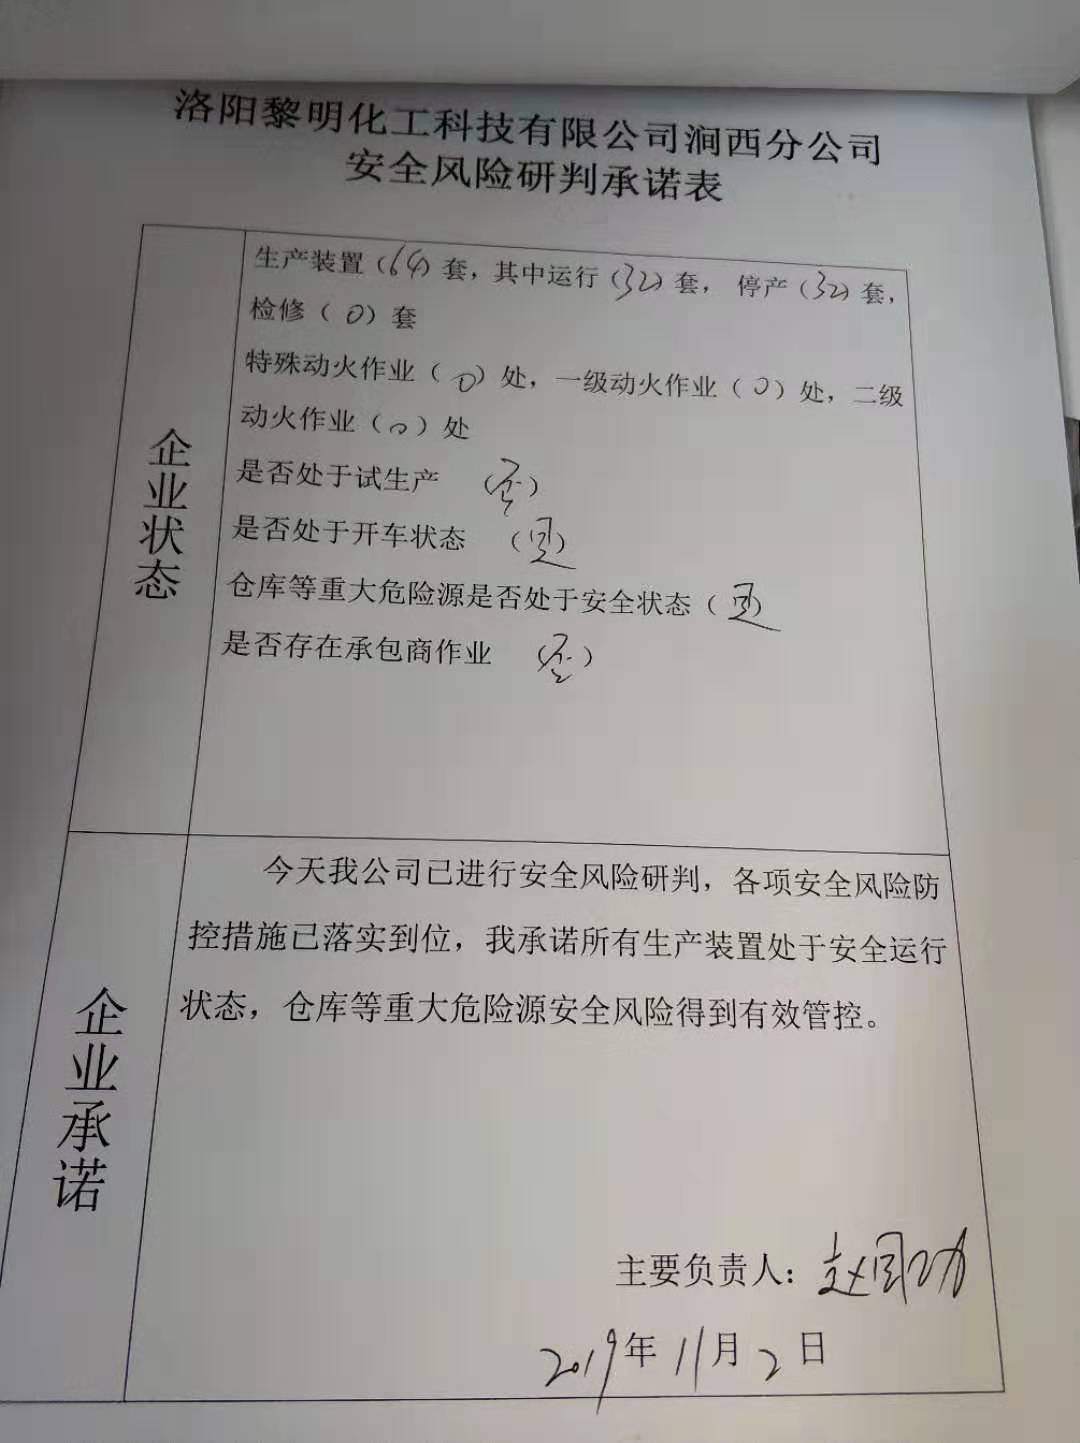 洛阳黎明化工科技有限公司涧西分公司
安全风险研判承诺表
企业状态
生产装置（64）套，其中运行（32）套， 停产（32）套，
检修（0）套
特殊动火作业（0）处，一级动火作业（0）处，二级
动火作业（0）处
是否处于试生产 （否）
是否处于开车状态 （是）
仓库等重大危险源是否处于安全状态（是）
是否存在承包商作业 （否）
企业承诺
今天我公司已进行安全风险研判，各项安全风险防
控措施已落实到位，我承诺所有生产装置处于安全运行
状态，仓库等重大危险源安全风险得到有效管控。
主要负责人：赵国功
2019年11月2日